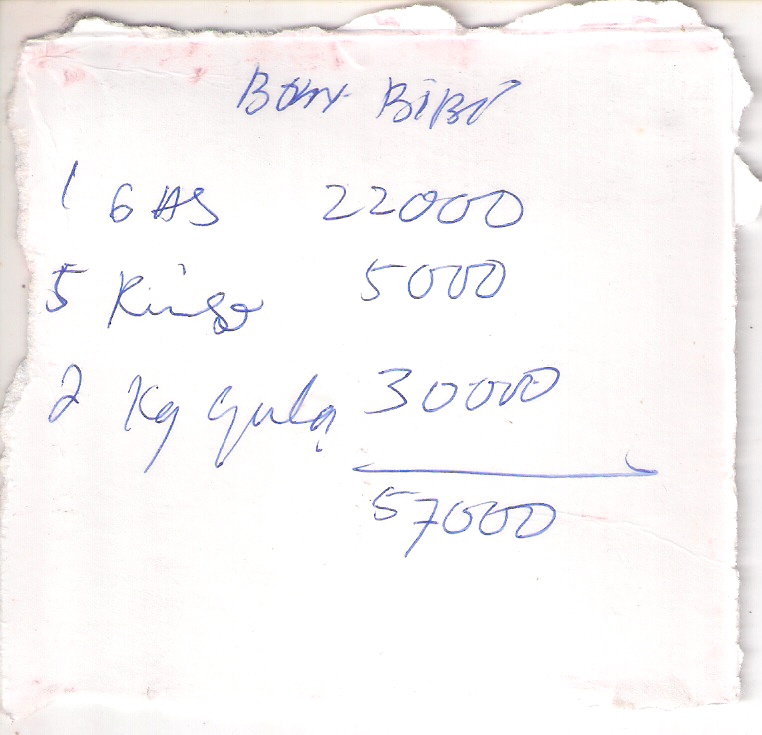 BIBI
1 GAS 22000
5 Rinso 5000
2 Kg Gula 30000
57000